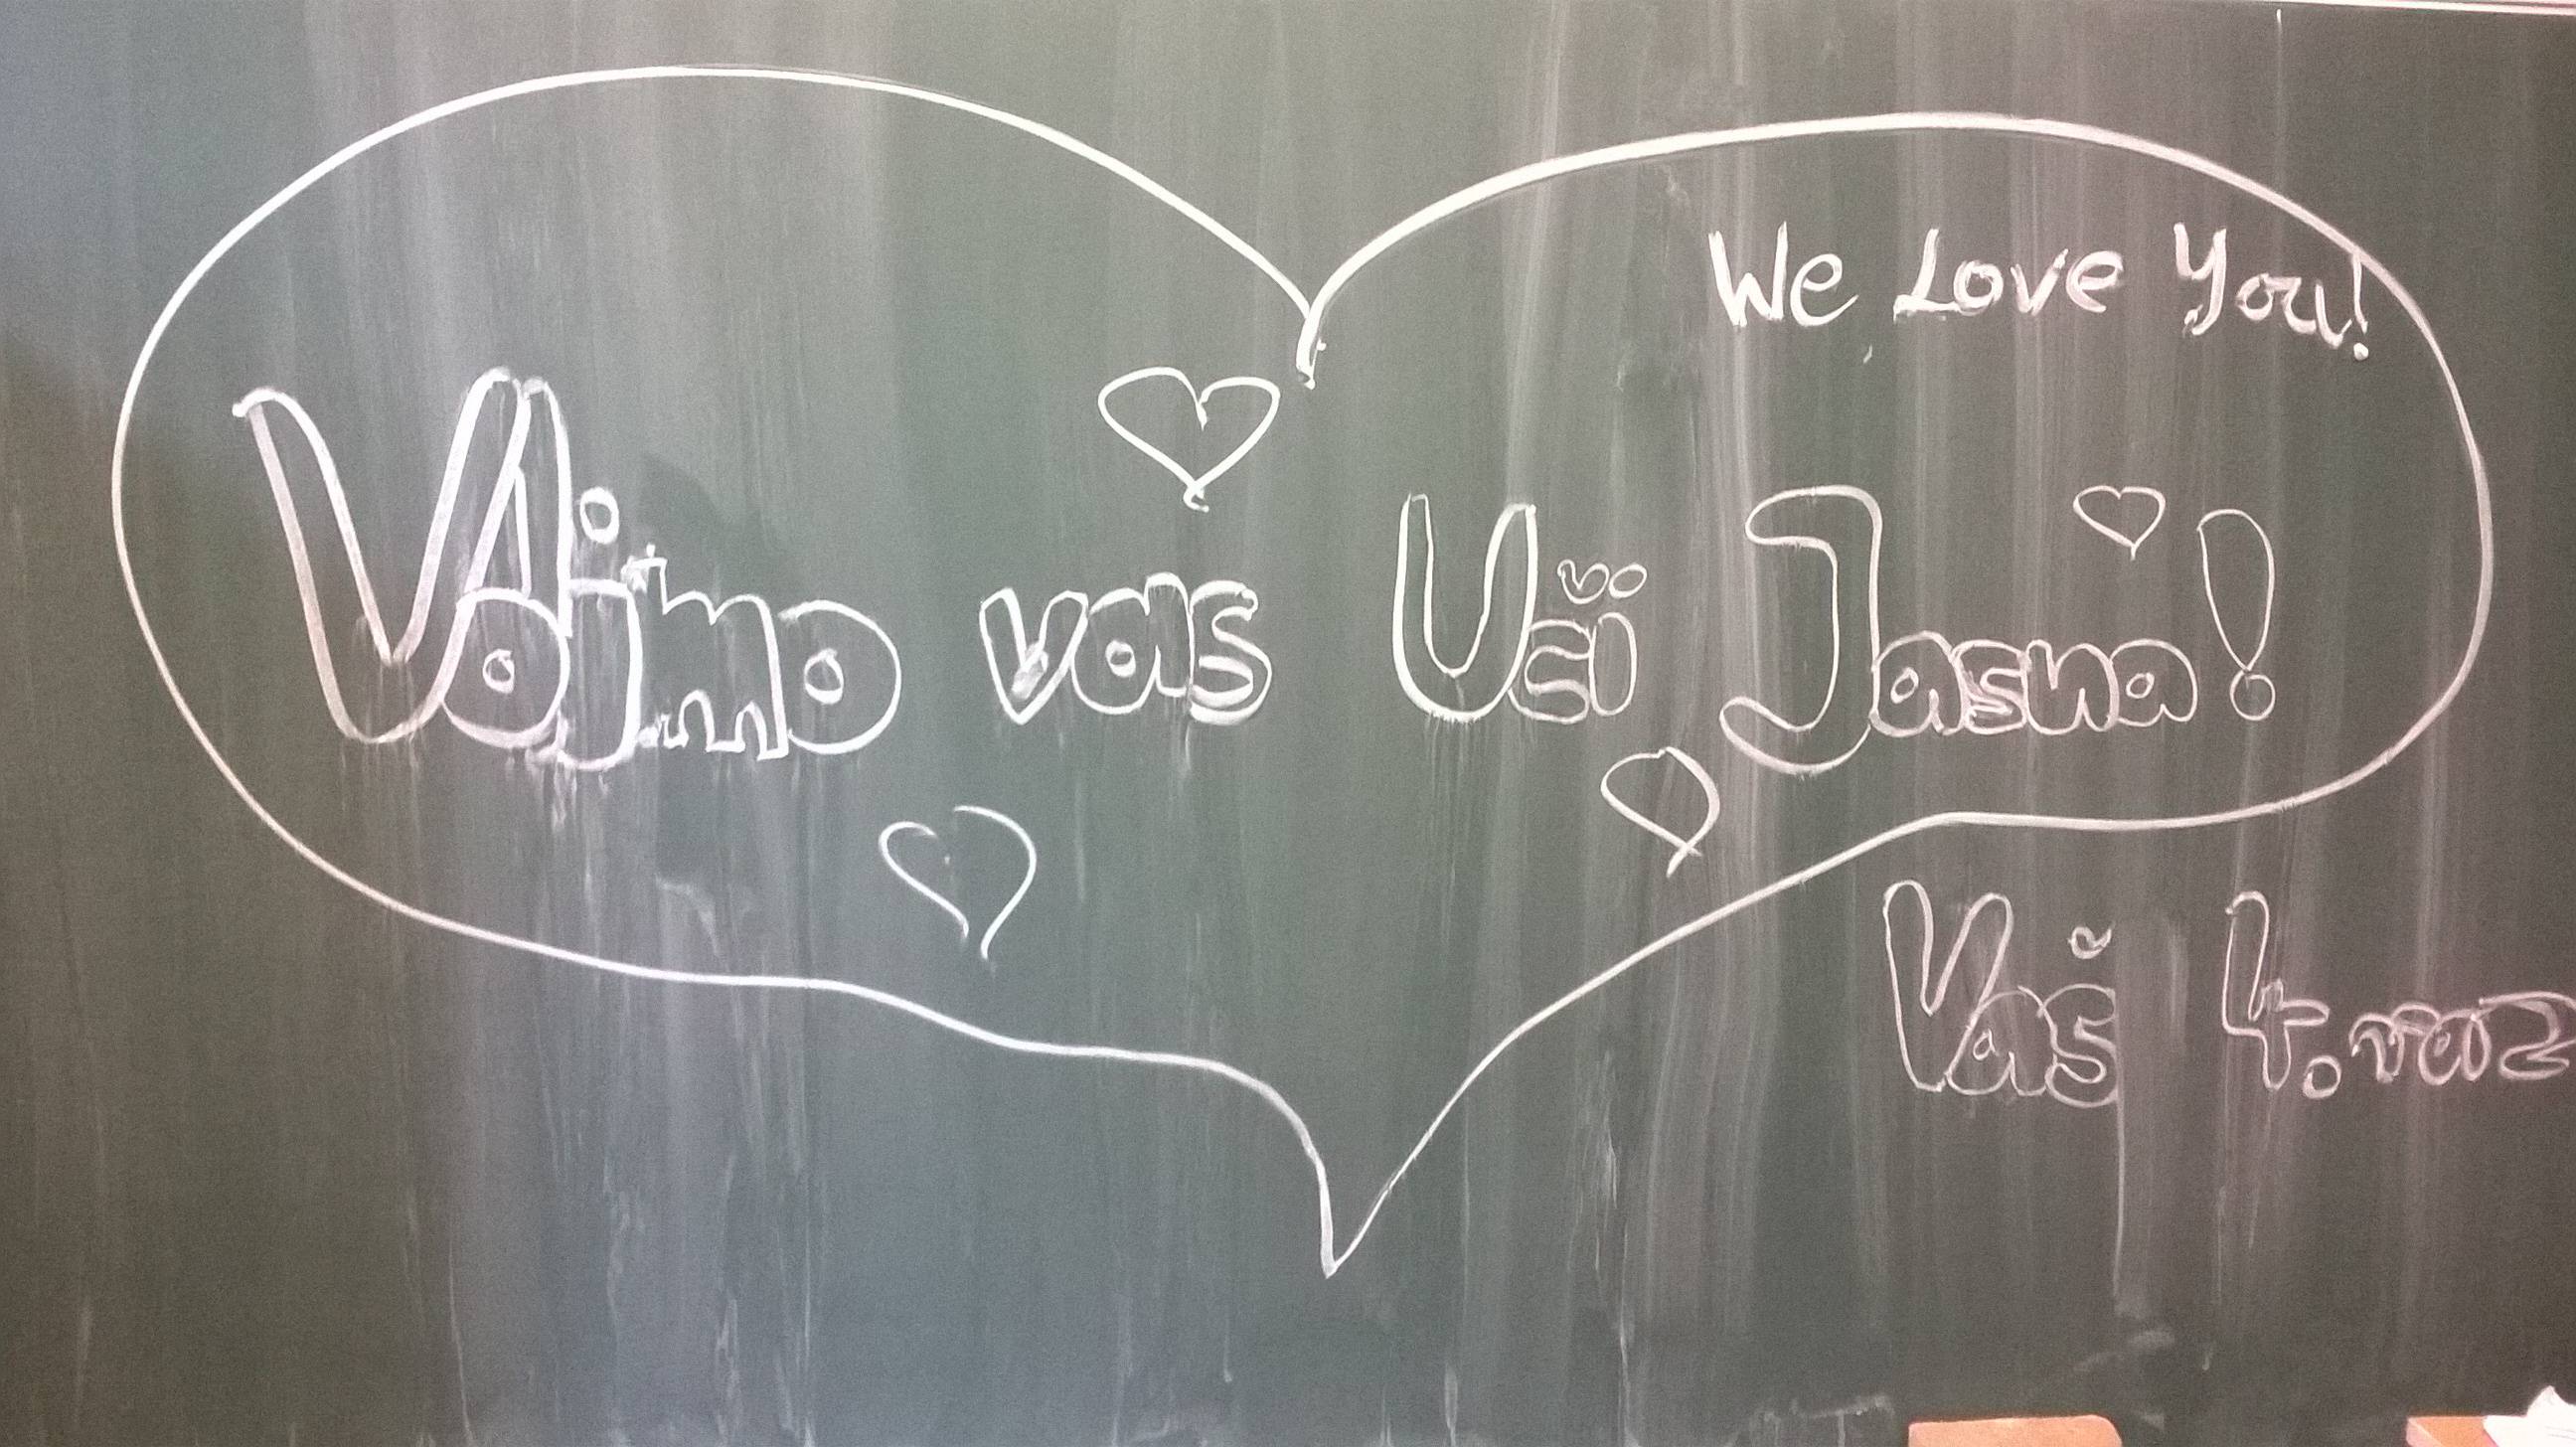 We Love You!
Volimo vas Uči Jasna!
Vaš 4.raz